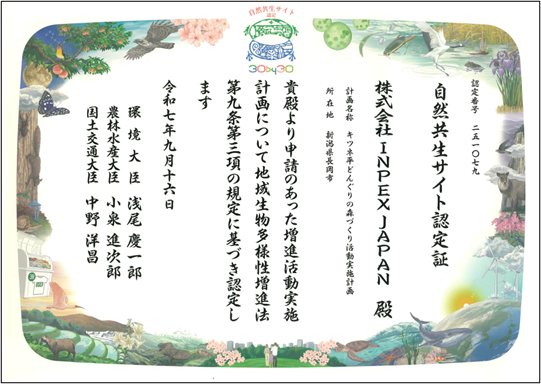 自然共生サイト
認定
30by30
認定番号　二五一〇七九
自然共生サイト認定証
株式会社INPEX JAPAN　殿
計画名称　キツネ平どんぐりの森づくり活動実施計画
所在地　新潟県長岡市
貴殿より申請のあった増進活動実施
計画について地域生物多様性増進法
第九条第三項の規定に基づき認定し
ます
令和七年九月十六日
環境大臣　浅尾慶一郎
農林水産大臣　小泉進次郎
国土交通大臣　中野洋昌